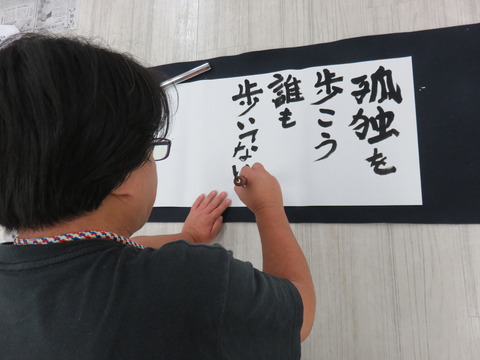 孤独を
歩こう
誰も
歩いてない